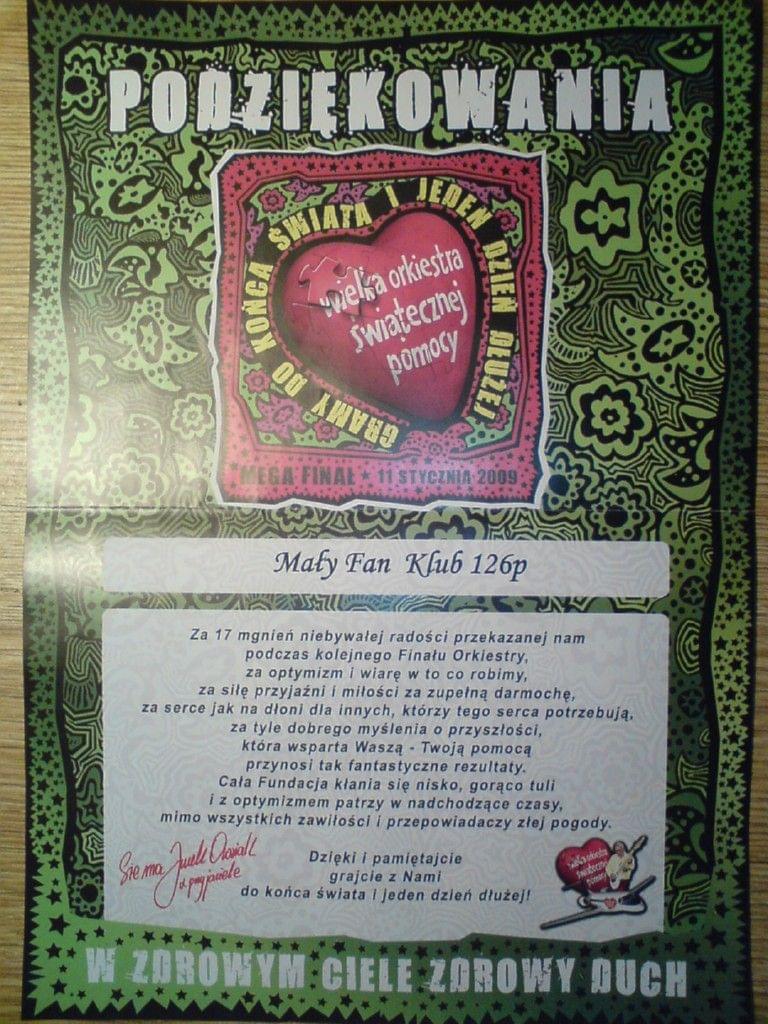 PODZIĘKOWANIA
GRAMY DO KOŃCA ŚWIATA I JEDEN DZIEŃ DŁUŻEJ
wielka orkiestra
świątecznej
pomocy
MEGA FINAŁ ★ 11 STYCZNIA 2009
Mały Fan Klub 126p
Za 17 mgnień niebywałej radości przekazanej nam
podczas kolejnego Finału Orkiestry,
za optymizm i wiarę w to co robimy,
za siłę przyjaźni i miłości za zupełną darmochę,
za serce jak na dłoni dla innych, którzy tego serca potrzebują,
za tyle dobrego myślenia o przyszłości,
która wsparta Waszą - Twoją pomocą
przynosi tak fantastyczne rezultaty.
Cała Fundacja kłania się nisko, gorąco tuli
i z optymizmem patrzy w nadchodzące czasy,
mimo wszystkich zawiłości i przepowiadaczy złej pogody.
Dzięki i pamiętajcie
grajcie z Nami
do końca świata i jeden dzień dłużej!
Sie ma Jurek Owsiak
i przyjaciele
wielka orkiestra
świątecznej
pomocy
W ZDROWYM CIELE ZDROWY DUCH